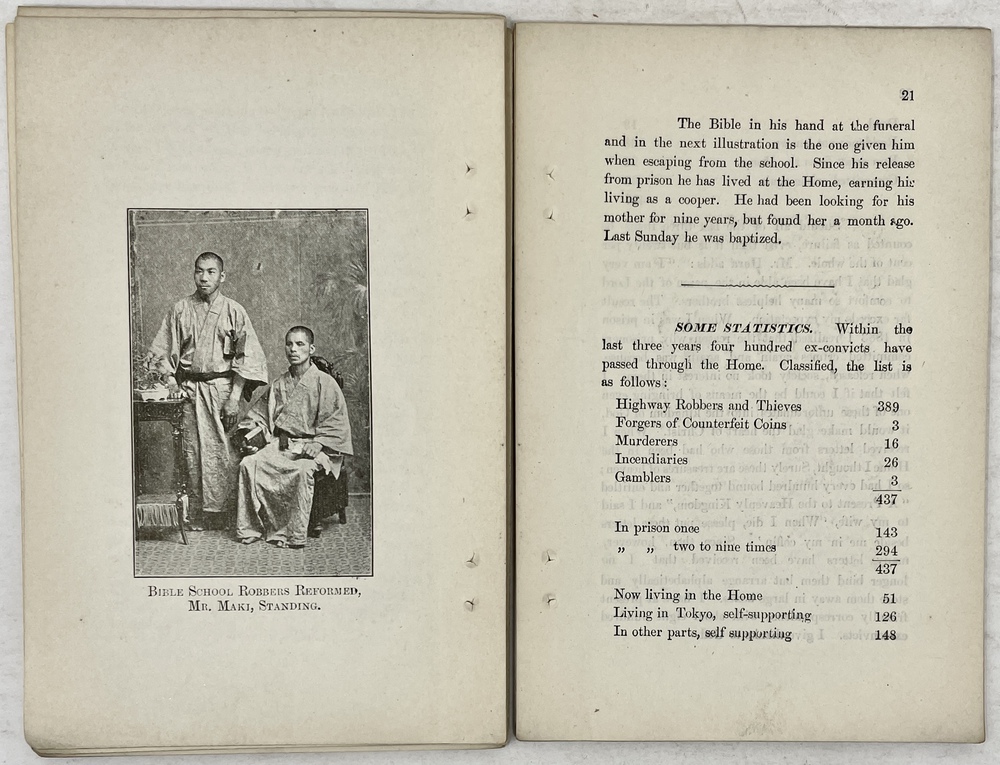 BIBLE SCHOOL ROBBERS REFORMED,
MR. MAKI, STANDING.
21
The Bible in his hand at the funeral
and in the next illustration is the one given him
when escaping from the school. Since his release
from prison he has lived at the Home, earning his
living as a cooper. He had been looking for his
mother for nine years, but found her a month ago.
Last Sunday he was baptized.
SOME STATISTICS. Within the
last three years four hundred ex-convicts have
passed through the Home. Classified, the list is
as follows:
Highway Robbers and Thieves 389
Forgers of Counterfeit Coins 3
Murderers 16
Incendiaries 26
Gamblers 3
437
In prison once 143
„ „ two to nine times 294
437
Now living in the Home 51
Living in Tokyo, self-supporting 126
In other parts, self supporting 148